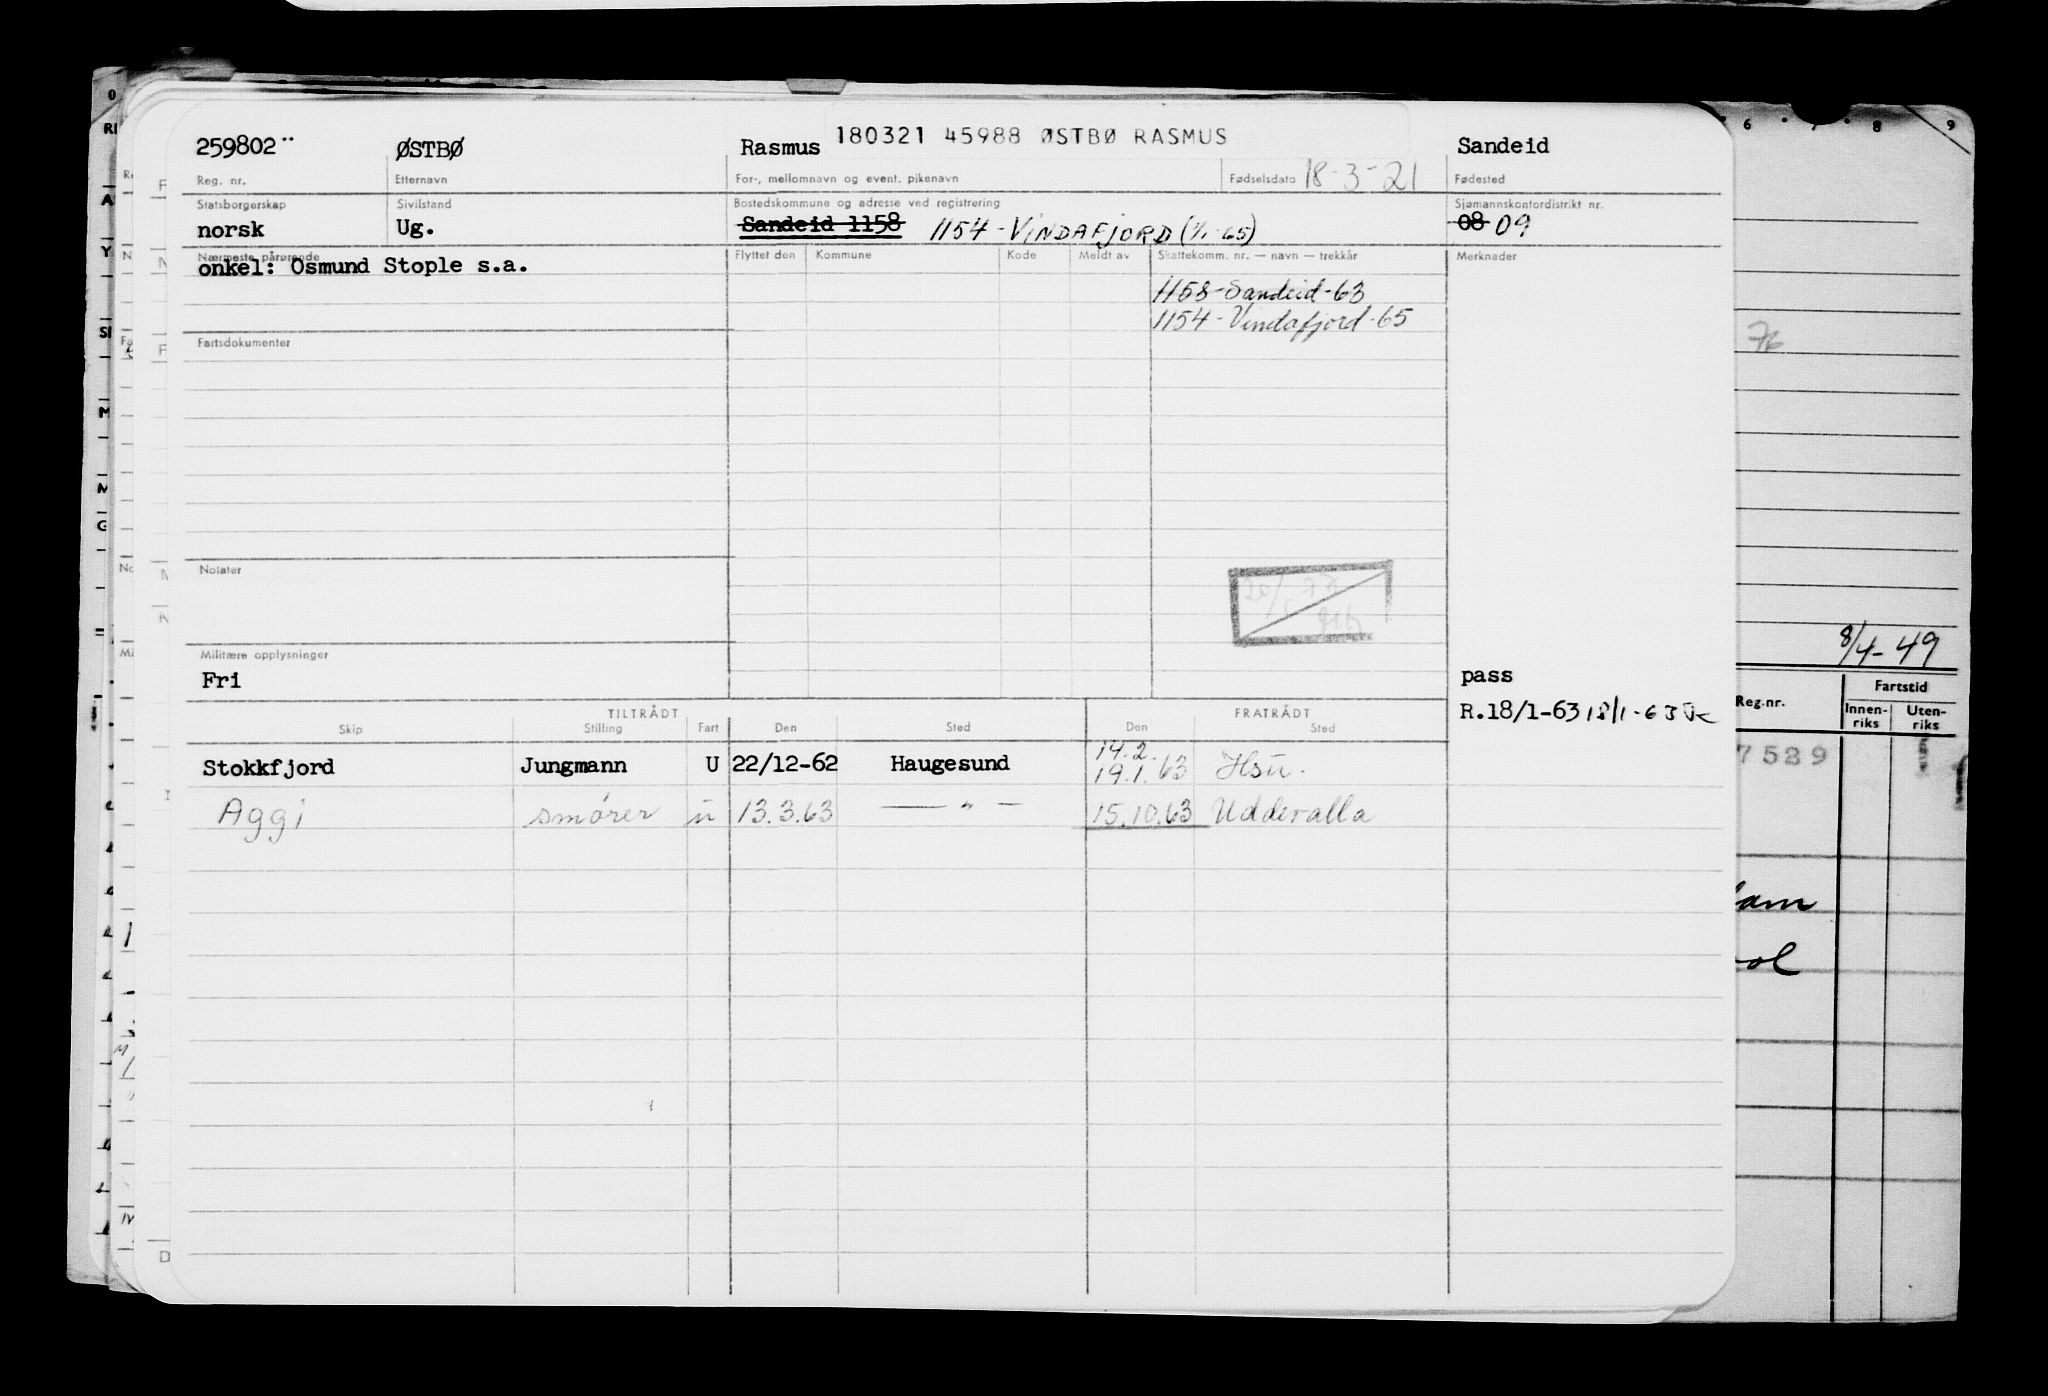 180321 45988 ØSTBØ RASMUS
259802 ØSTBØ Rasmus Sandeid
Reg. nr. Etternavn For-, mellomnavn og event. pikenavn Fødselsdato 18-3-21 Fødested
Statsborgerskap Sivilstand Bostedskommune og adresse ved registrering Sjømannskontordistrikt nr.
norsk Ug. Sandeid 1158 1154 - VINDAFJORD (1/1-65) 08 09
Nærmeste pårørende Flyttet den Kommune Kode Meldt av Skattekomm. nr. — navn — trekkår Merknader
onkel: Osmund Stople s.a.
1158-Sandeid-63
1154-Vindafjord-65
Fartsdokumenter
76
Notater
8/4-49
Militære opplysninger
Fri pass
R.18/1-63 18/1-63
TILTRÅDT FRATRÅDT
Skip Stilling Fart Den Sted Den Sted
Reg.nr. Fartstid
Innen-riks Uten-riks
7529
14.2.
Stokkfjord Jungmann U 22/12-62 Haugesund 19.1.63 Hsu.
Aggi smører u 13.3.63 — " — 15.10.63 Udderalla